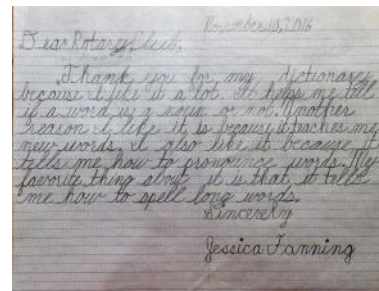 November 10, 2016
Dear Rotary Club,
Thank you for my dictionary
because I like it a lot. It helps me tell
if a word is a noun or not. Another
reason I like it is because it teaches me
new words. I also like it because it
tells me how to pronounce words. My
favorite thing about it is that it tells
me how to spell long words.
Sincerely
Jessica Fanning